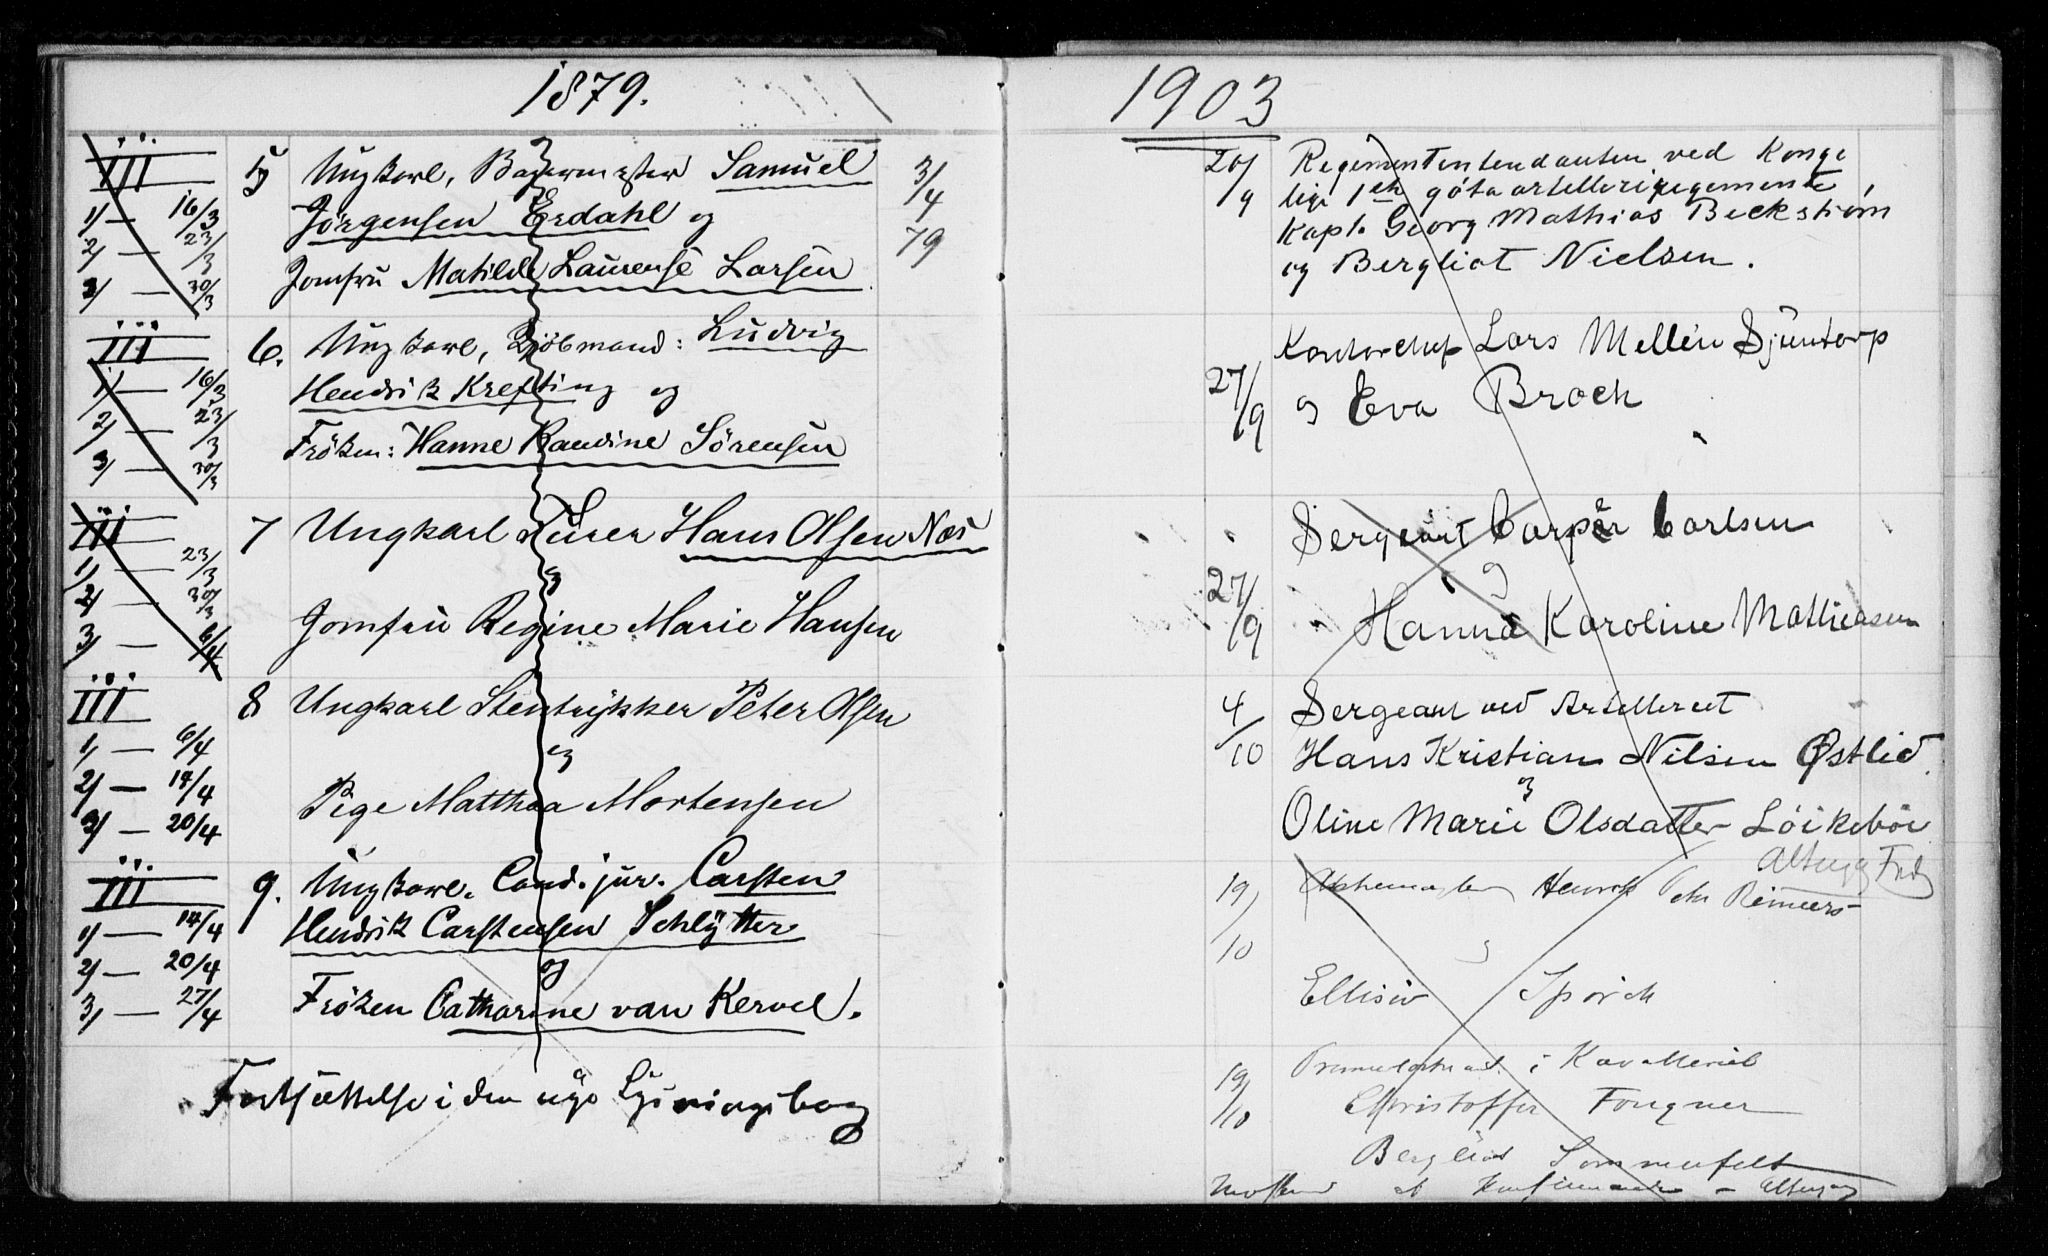 1879.
III
5
Ungkarl, Bagermester Samuel
3/4
79
1/ — 16/3
Jørgensen Erdahl og
2/ — 23/3
Jomfru Matilde Laurense Larsen
3/ — 30/3
III
6.
Ungkarl, Kjöbmand: Ludvig
1/ — 16/3
Hendrik Krefting og
2/ — 23/3
Fröken: Hanne Randine Sörensen
3/ — 30/3
III
7 Ungkarl Hans Olsen Næs
1/ — 23/3
og
2/ — 30/3
Jomfru Regine Marie Hansen
3/ — 6/4
III
8 Ungkarl Stentrykker Peter Olsen
1/ — 6/4
og
2/ — 14/4
Pige Matthea Mortensen
3/ — 20/4
III
9. Ungkarl. Cand. jur. Carsten
1/ — 14/4
Hendrik Carstensen Schlytter
2/ — 20/4
og
3/ — 27/4
Fröken Catharine van Kervel.
Fortsættelse i den nye Lysningsbog
1903
20/9
Regimentintendanten ved Konge
lige 1ste göta artelleriregemente,
Kapt. Georg Mathias Beckström
og Bergliot Nielsen.
Kontorchef Lars Mellin Sjuntorp
27/9
og Eva Broch
Sergeant Casper Carlsen
og
27/9
Hanna Karoline Mathiasen
4/10
Sergeant ved Artilleriet
Hans Kristian Nilsen Østlid
og
Oline Marie Olsdatter Löikeböe
19/10
Henrik Reimers
Ellisiv
19/10
i Kavalleriet
Christoffer Fougner
Bergliot Sommerfelt